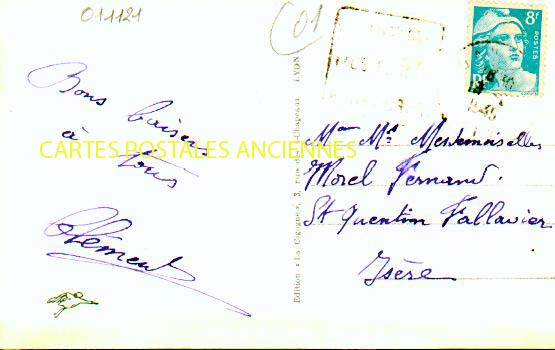 011121
01
8f
POSTES
Bons baisers
à tous
Clément
CARTES POSTALES ANCIENNES
Edition «La Cigogne», 3, rue de la Chapeau LYON
Mme Mr Mesdemoiselles
Morel Fernand.
St Quentin Fallavier
Isère